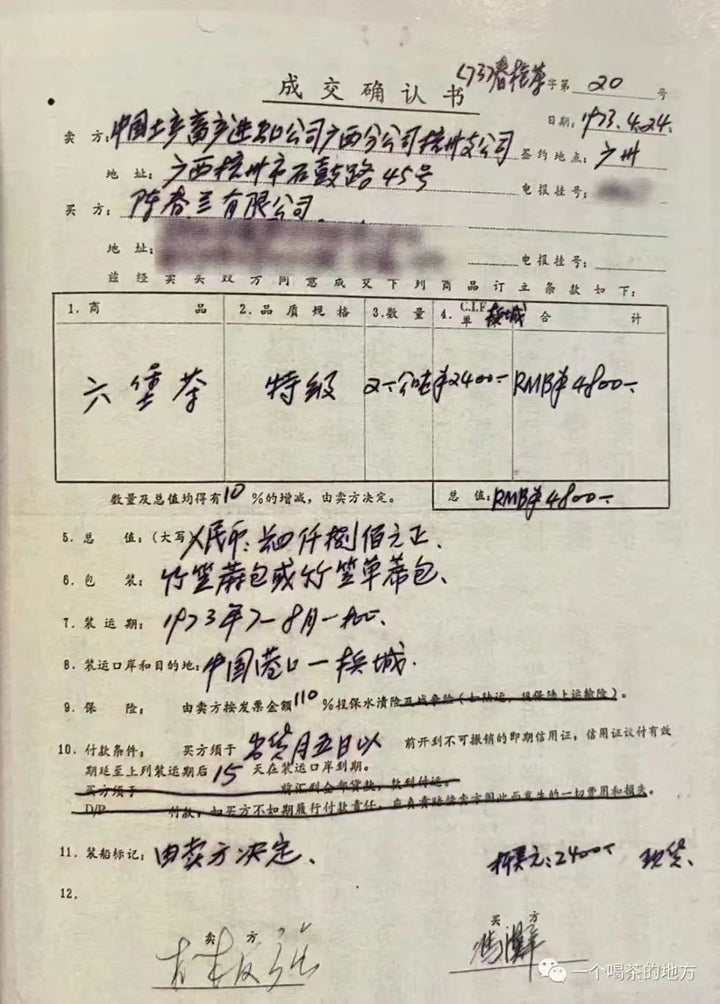 (73)春梧茶字第 20 号
成交确认书
日期: 1973.4.24.
卖方: 中国土产畜产进出口公司广西分公司梧州支公司 签约地点: 广州
地址: 广西梧州市石鼓路45号 电报挂号:
买方: 陈春兰有限公司
地址: 电报挂号:
兹经买卖双方同意成交下列商品订立条款如下:
1. 商品 2. 品质规格 3. 数量 4. C.I.F. 槟城 单 合计
六堡茶 特级 2-公吨 ¥2400- RMB¥4800-
数量及总值均得有10%的增减, 由卖方决定。 总值: RMB¥4800-
5. 总值: (大写) 人民币: 肆仟捌佰元正.
6. 包装: 竹笠蓆包或竹笠草蓆包、
7. 装运期: 1973年7-8月一批.
8. 装运口岸和目的地: 中国港口-槟城.
9. 保险: 由卖方按发票金额110%投保水渍险及战争险(如陆运,投保陆上运输险)。
10. 付款条件: 买方须于 货月五日以 前开到不可撤销的即期信用证, 信用证议付有效
期延至上列装运期后15天在装运口岸到期。
买方须于 前汇到全部货款, 款到付运。
D/P 付款, 如买方不如期履行付款责任, 应负责赔偿卖方因此而发生的一切费用和损失。
11. 装船标记: 由卖方决定、 折美元: 2400- 现货、
12.
卖方 买方
一个喝茶的地方